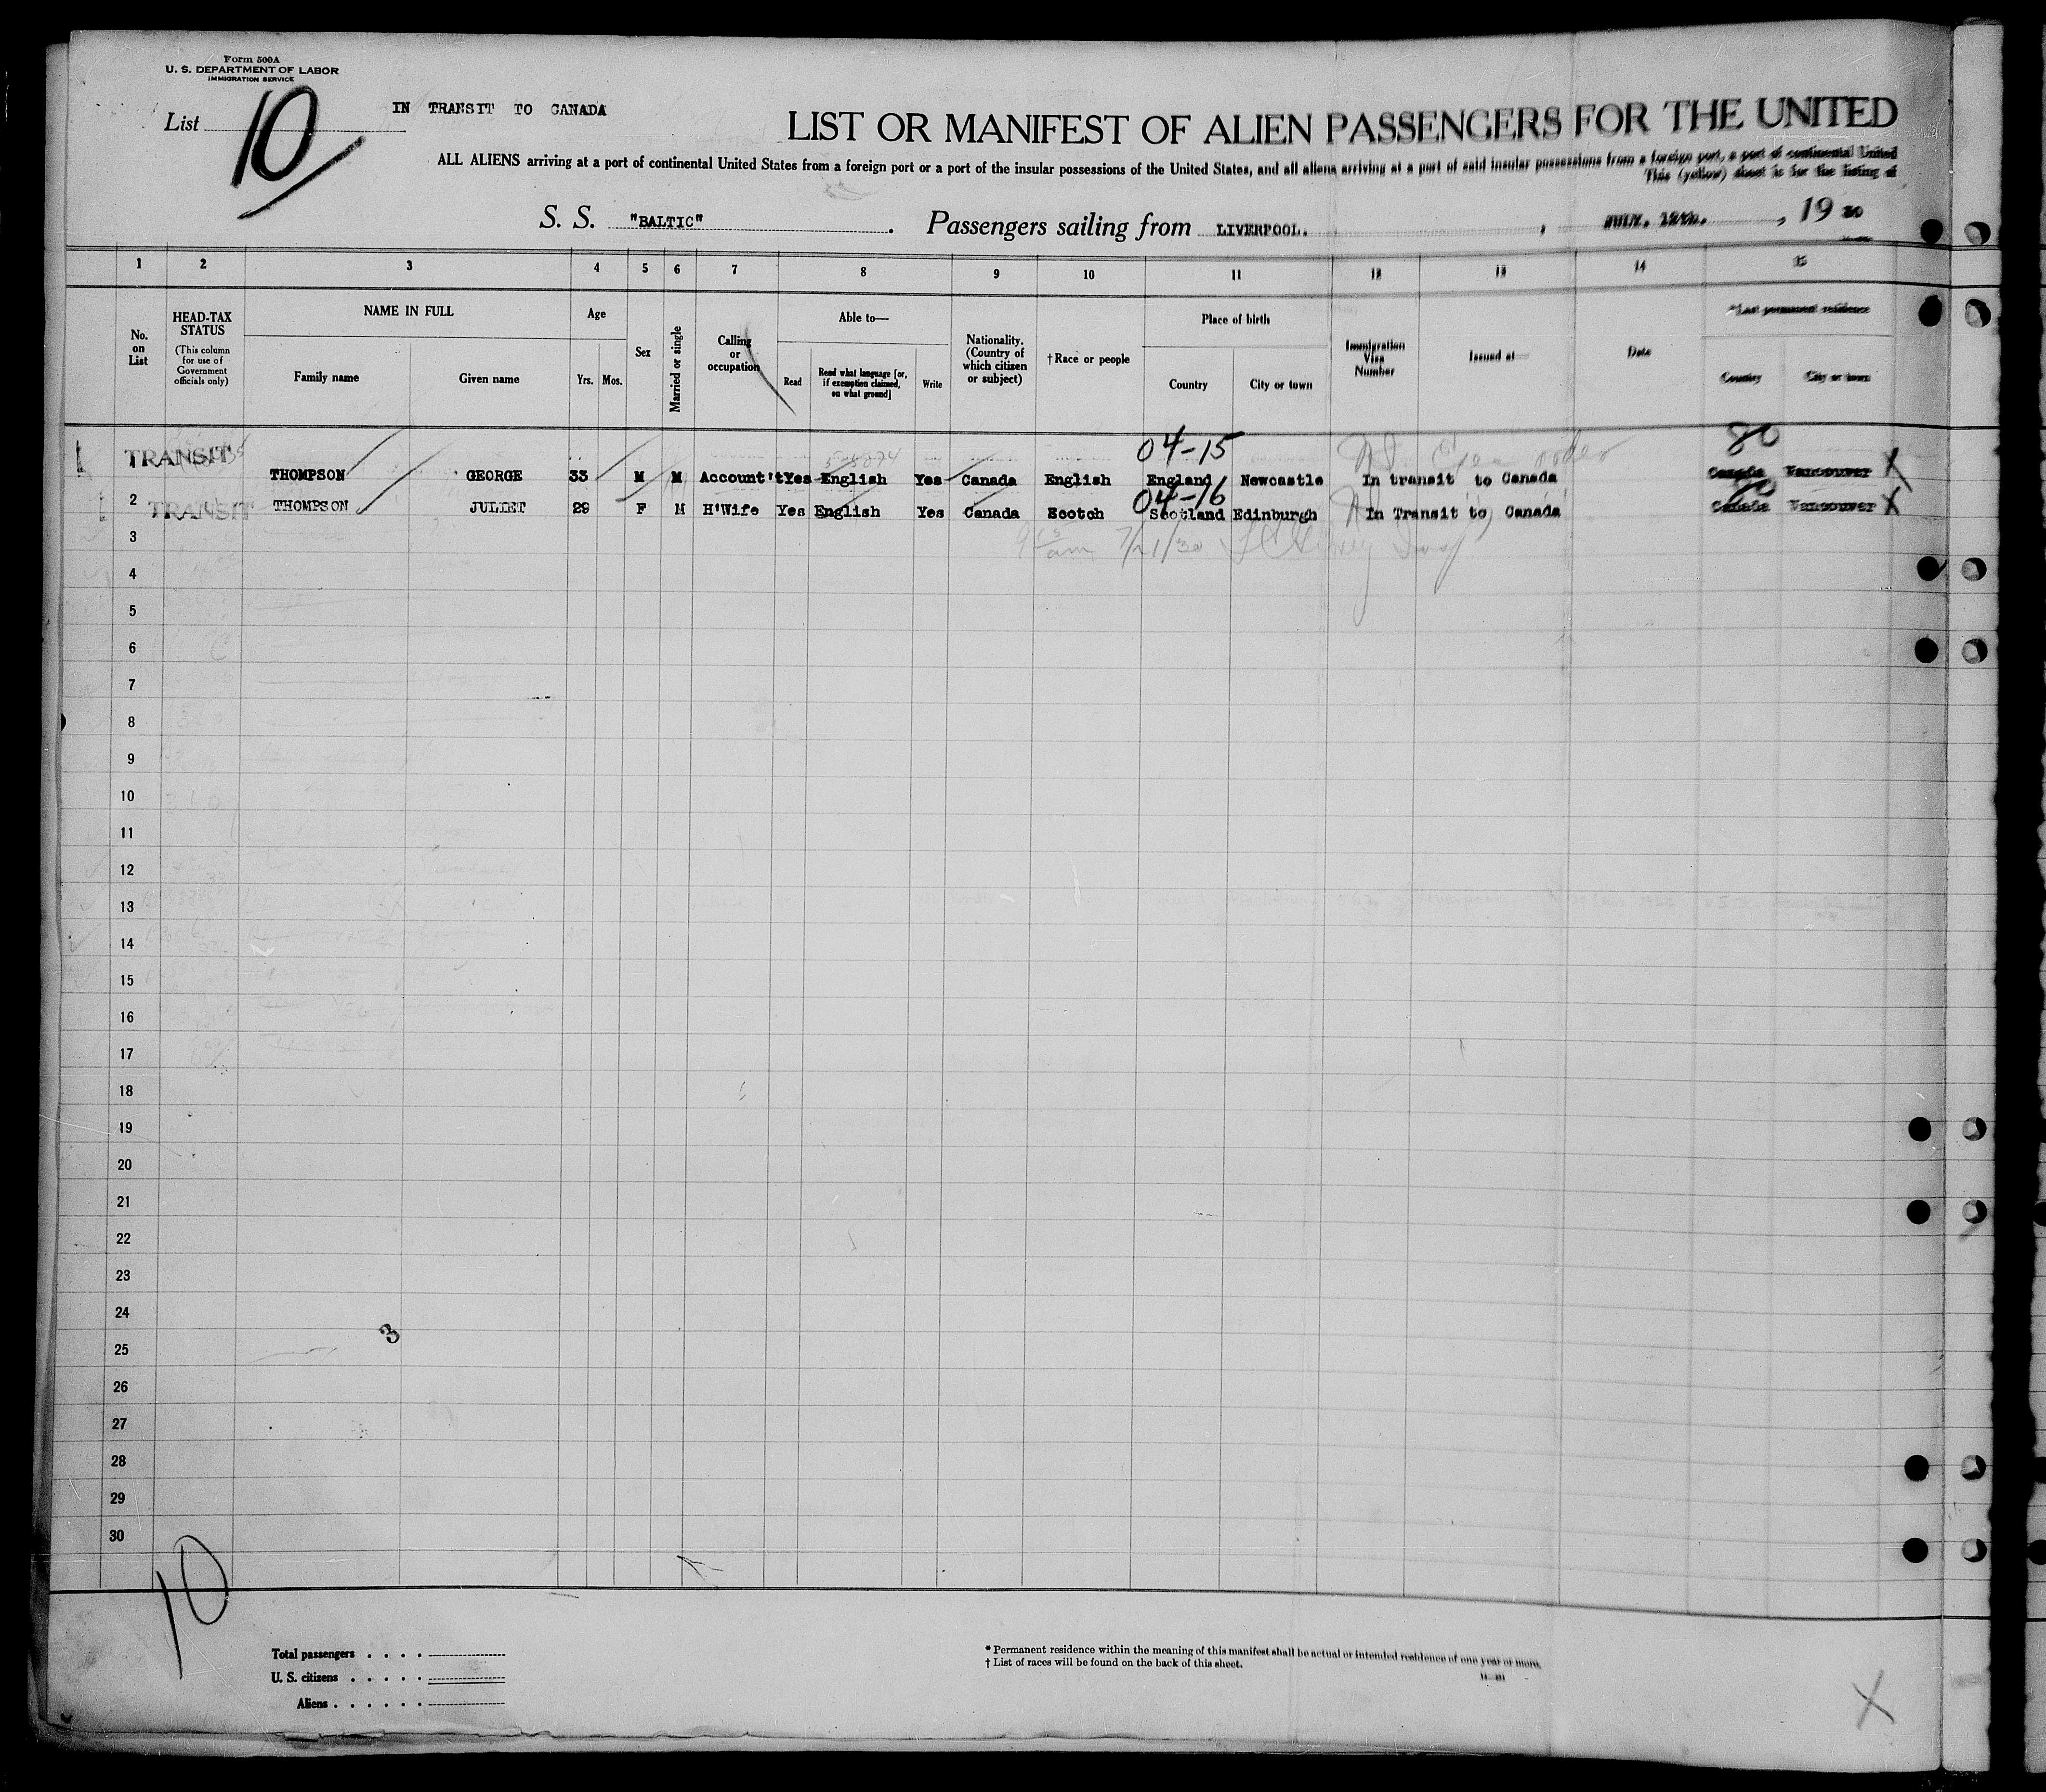 Form 500A
U. S. DEPARTMENT OF LABOR
IMMIGRATION SERVICE
List 10
IN TRANSIT TO CANADA
LIST OR MANIFEST OF ALIEN PASSENGERS FOR THE UNITED
ALL ALIENS arriving at a port of continental United States from a foreign port or a port of the insular possessions of the United States, and all aliens arriving at a port of said insular possessions from a foreign port, a port of continental United
This (yellow) sheet is for the listing of
S. S. "BALTIC". Passengers sailing from LIVERPOOL. , JULY. 12th. , 19 30
1 2 3 4 5 6 7 8 9 10 11 12 13 14 15
No. on List
HEAD-TAX STATUS
(This column for use of Government officials only)
NAME IN FULL
Family name Given name
Age
Yrs. Mos.
Sex
Married or single
Calling or occupation
Able to—
Read
Read what language [or, if exemption claimed, on what ground]
Write
Nationality. (Country of which citizen or subject)
†Race or people
Place of birth
Country City or town
Immigration Visa Number
Issued at—
Date
*Last permanent residence
Country City or town
04-15 80
1 TRANSIT THOMPSON GEORGE 33 M M Account't Yes English Yes Canada English England Newcastle In transit to Canada Canada Vancouver X
04-16
2 TRANSIT THOMPSON JULIET 29 F M H'Wife Yes English Yes Canada Scotch Scotland Edinburgh In Transit to Canada Canada Vancouver X
3 7/21/30
4
5
6
7
8
9
10
11
12
13
14
15
16
17
18
19
20
21
22
23
24
3
25
26
27
28
29
30
10
Total passengers . . . .
U. S. citizens . . . . .
Aliens . . . . . .
* Permanent residence within the meaning of this manifest shall be actual or intended residence of one year or more.
† List of races will be found on the back of this sheet.
X